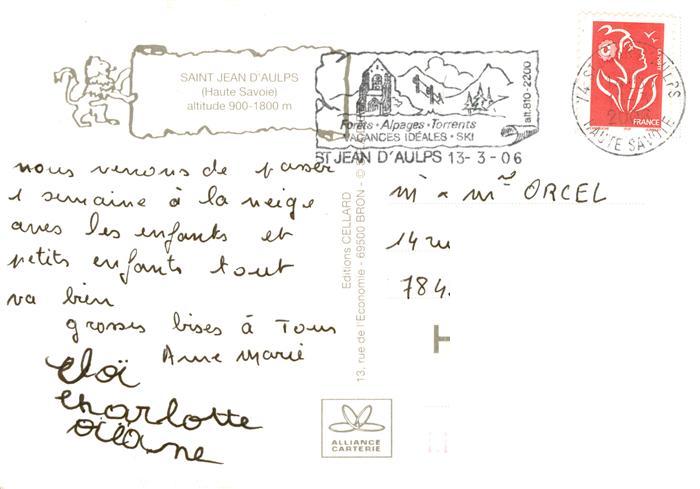 SAINT JEAN D'AULPS
(Haute Savoie)
altitude 900-1800 m
alt. 810-2200
Forêts · Alpages · Torrents
VACANCES IDÉALES · SKI
ST JEAN D'AULPS 13-3-06
LA POSTE
FRANCE
HAUTE SAVOIE
nous venons de passer
1 semaine à la neige
avec les enfants et
petits enfants tout
va bien
grosses bises à Tous
Anne Marie
Charlotte
Océane
Editions CELLARD
13, rue de l'Economie - 69500 BRON - ©
M & Mme ORCEL
14 ru
784
ALLIANCE
CARTERIE